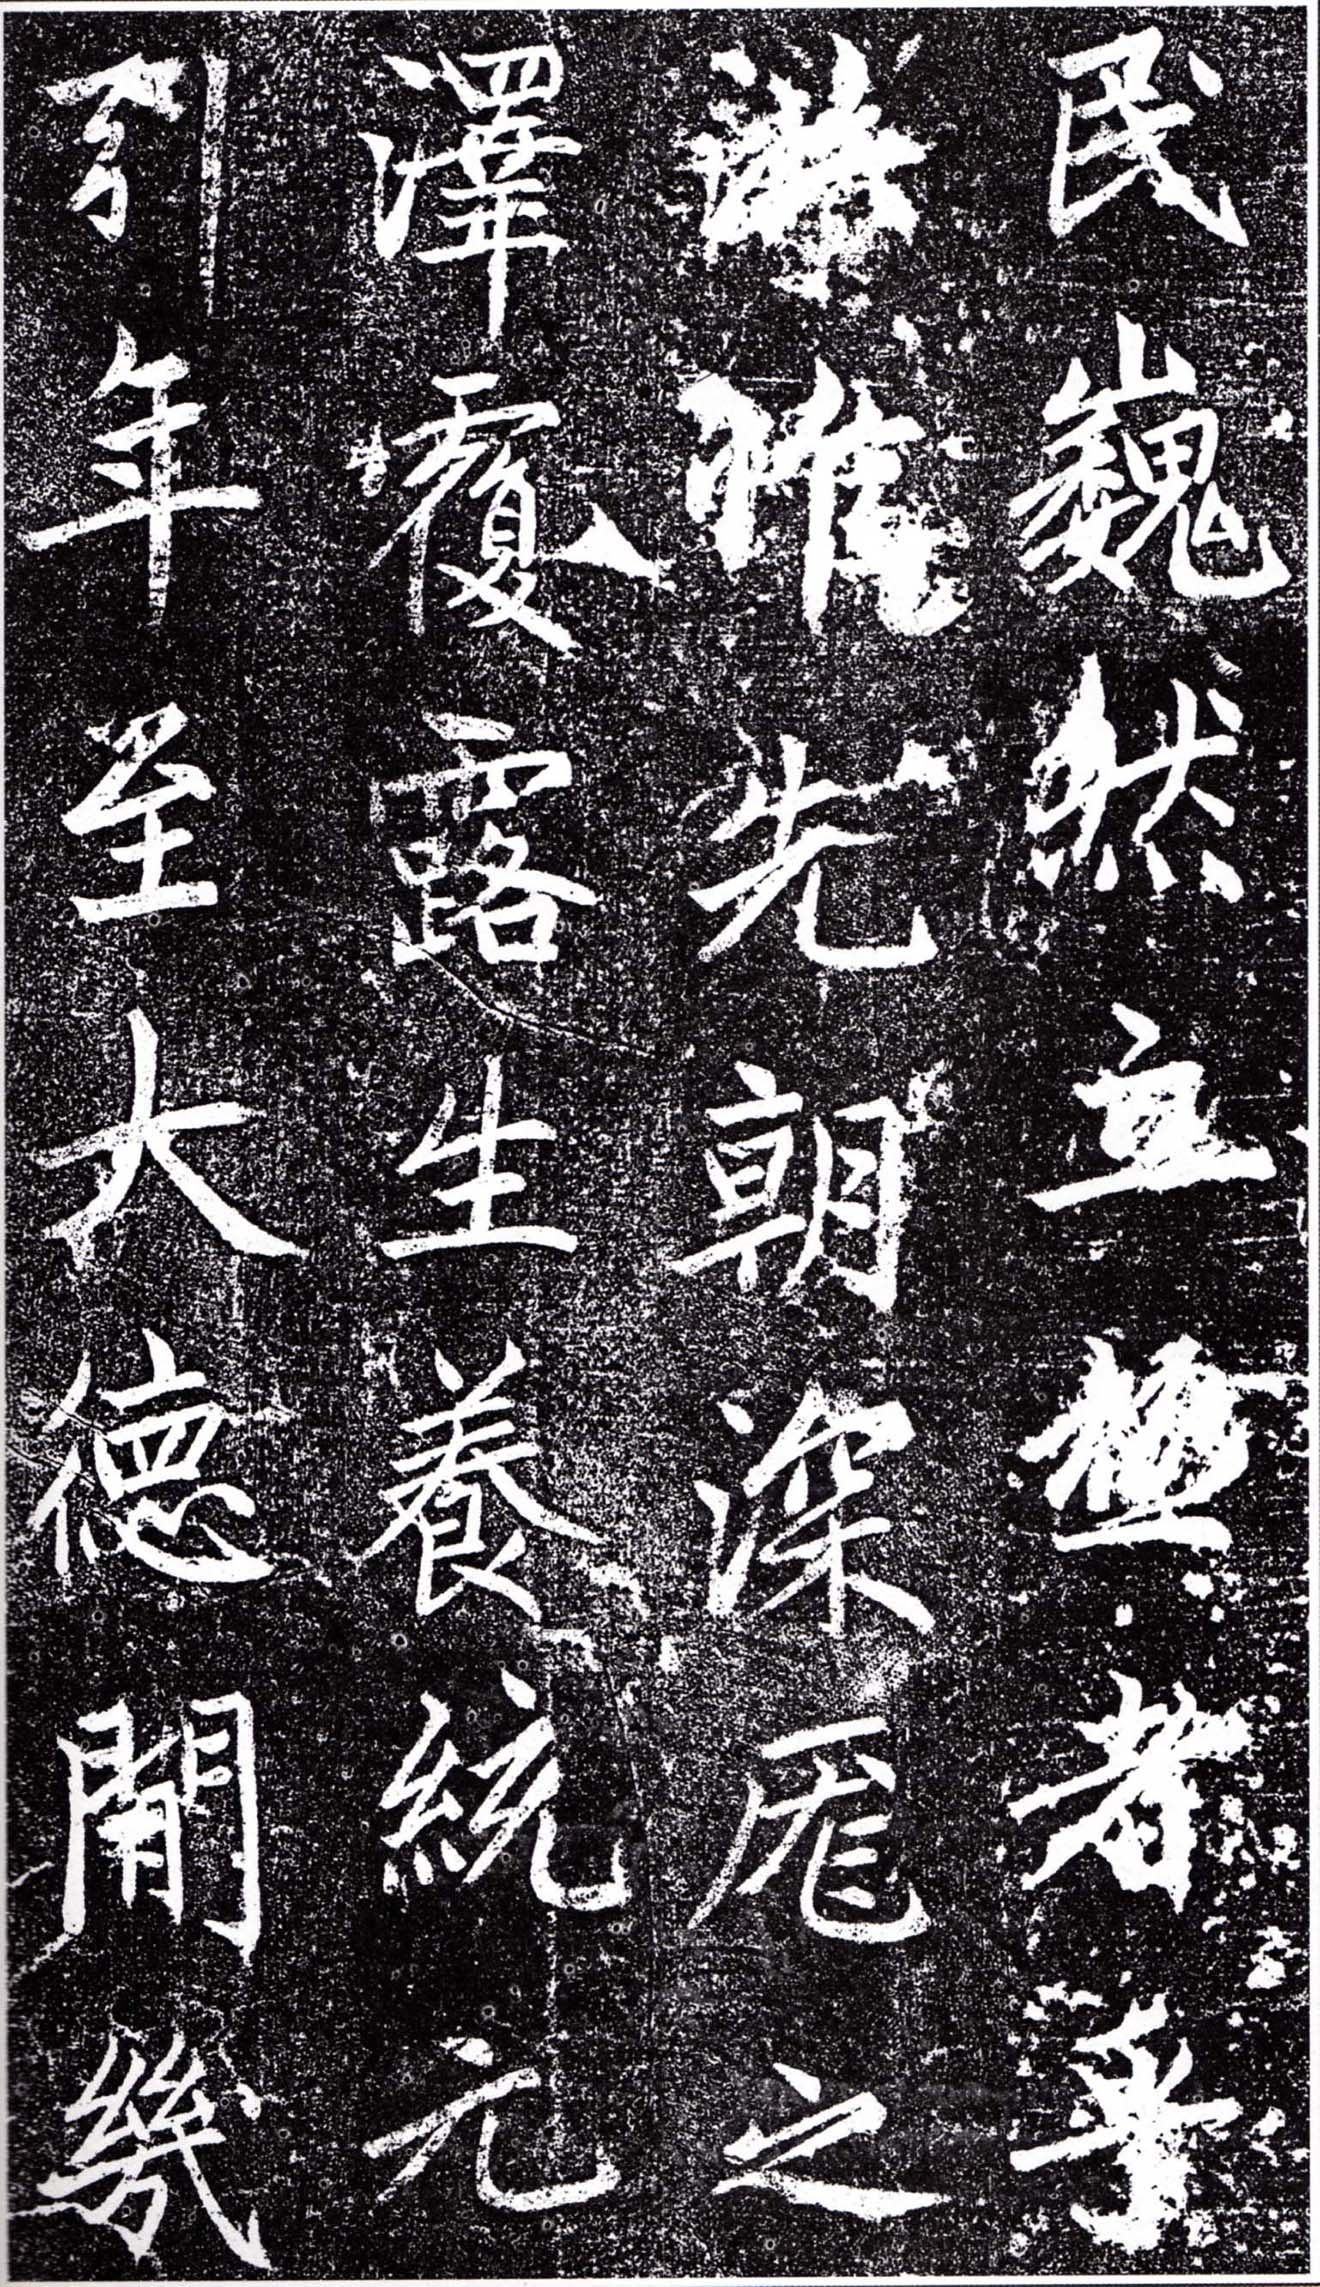 民巍然立極者乎
惟先朝深厖之
澤覆露生養統元
引年至大德開幾